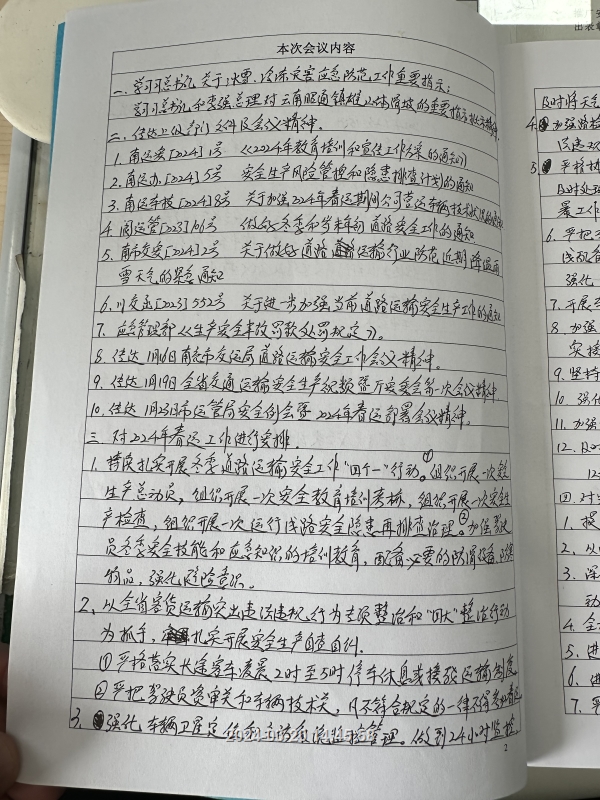 本次会议内容
一、学习习总书记关于冰雪、冷冻灾害应急防范工作重要指示；
学习习总书记和李强总理对云南昭通镇雄山体滑坡的重要指示批示精神。
二、传达上级部门文件及会议精神。
1. 南运安[2024]1号 《2024年教育培训和宣传工作方案的通知》
2. 南运办[2024]5号 安全生产风险管控和隐患排查计划的通知
3. 南运车技[2024]8号 关于加强2024年春运期间公司营运车辆技术状况的通知
4. 阆运管[2023]106号 做好冬季和岁末年初道路安全工作的通知
5. 南市交安[2024]2号 关于做好道路运输行业防范近期降温雨
雪天气的紧急通知
6. 川交函[2023]552号 关于进一步加强当前道路运输安全生产工作的通知
7. 应急管理部《生产安全事故罚款处罚规定》。
8. 传达1月16日南充市交运局道路运输安全工作会议精神。
9. 传达1月19日全省交通运输安全生产视频暨厅安委会第一次会议精神
10. 传达1月23日市运管局安全例会暨2024年春运部署会议精神。
三、对2024年春运工作进行安排。
1. 持续扎实开展冬季道路运输安全工作"四个一"行动。①组织开展一次安全
生产总动员，组织开展一次安全教育培训考核，组织开展一次安全生
产检查，组织开展一次运行线路安全隐患再排查治理。②加强驾驶
员冬季安全技能和应急知识的培训教育，配备必要的防滑设备、防寒
物品，强化避险意识。
2、以全省客货运输突出违法违规行为专项整治和"四大"整治行动
为抓手，扎实开展安全生产自查自纠。
①严格落实长途客车凌晨2时至5时停车休息或接驳运输制度
②严把驾驶员资审关和车辆技术关，凡不符合规定的一律不得参加春运
3. 强化车辆卫星定位 监控管理。做到24小时监控
2
及时将天气
4. 加强路检
5. 严格执
及时处理
署工作
6. 严把
强化
7. 开展
8. 加强
9. 坚持
10. 强化
11.
12. 及时
四、对
1.
2. 以
3. 深
动
4. 全
5. 进
6.
7. 严